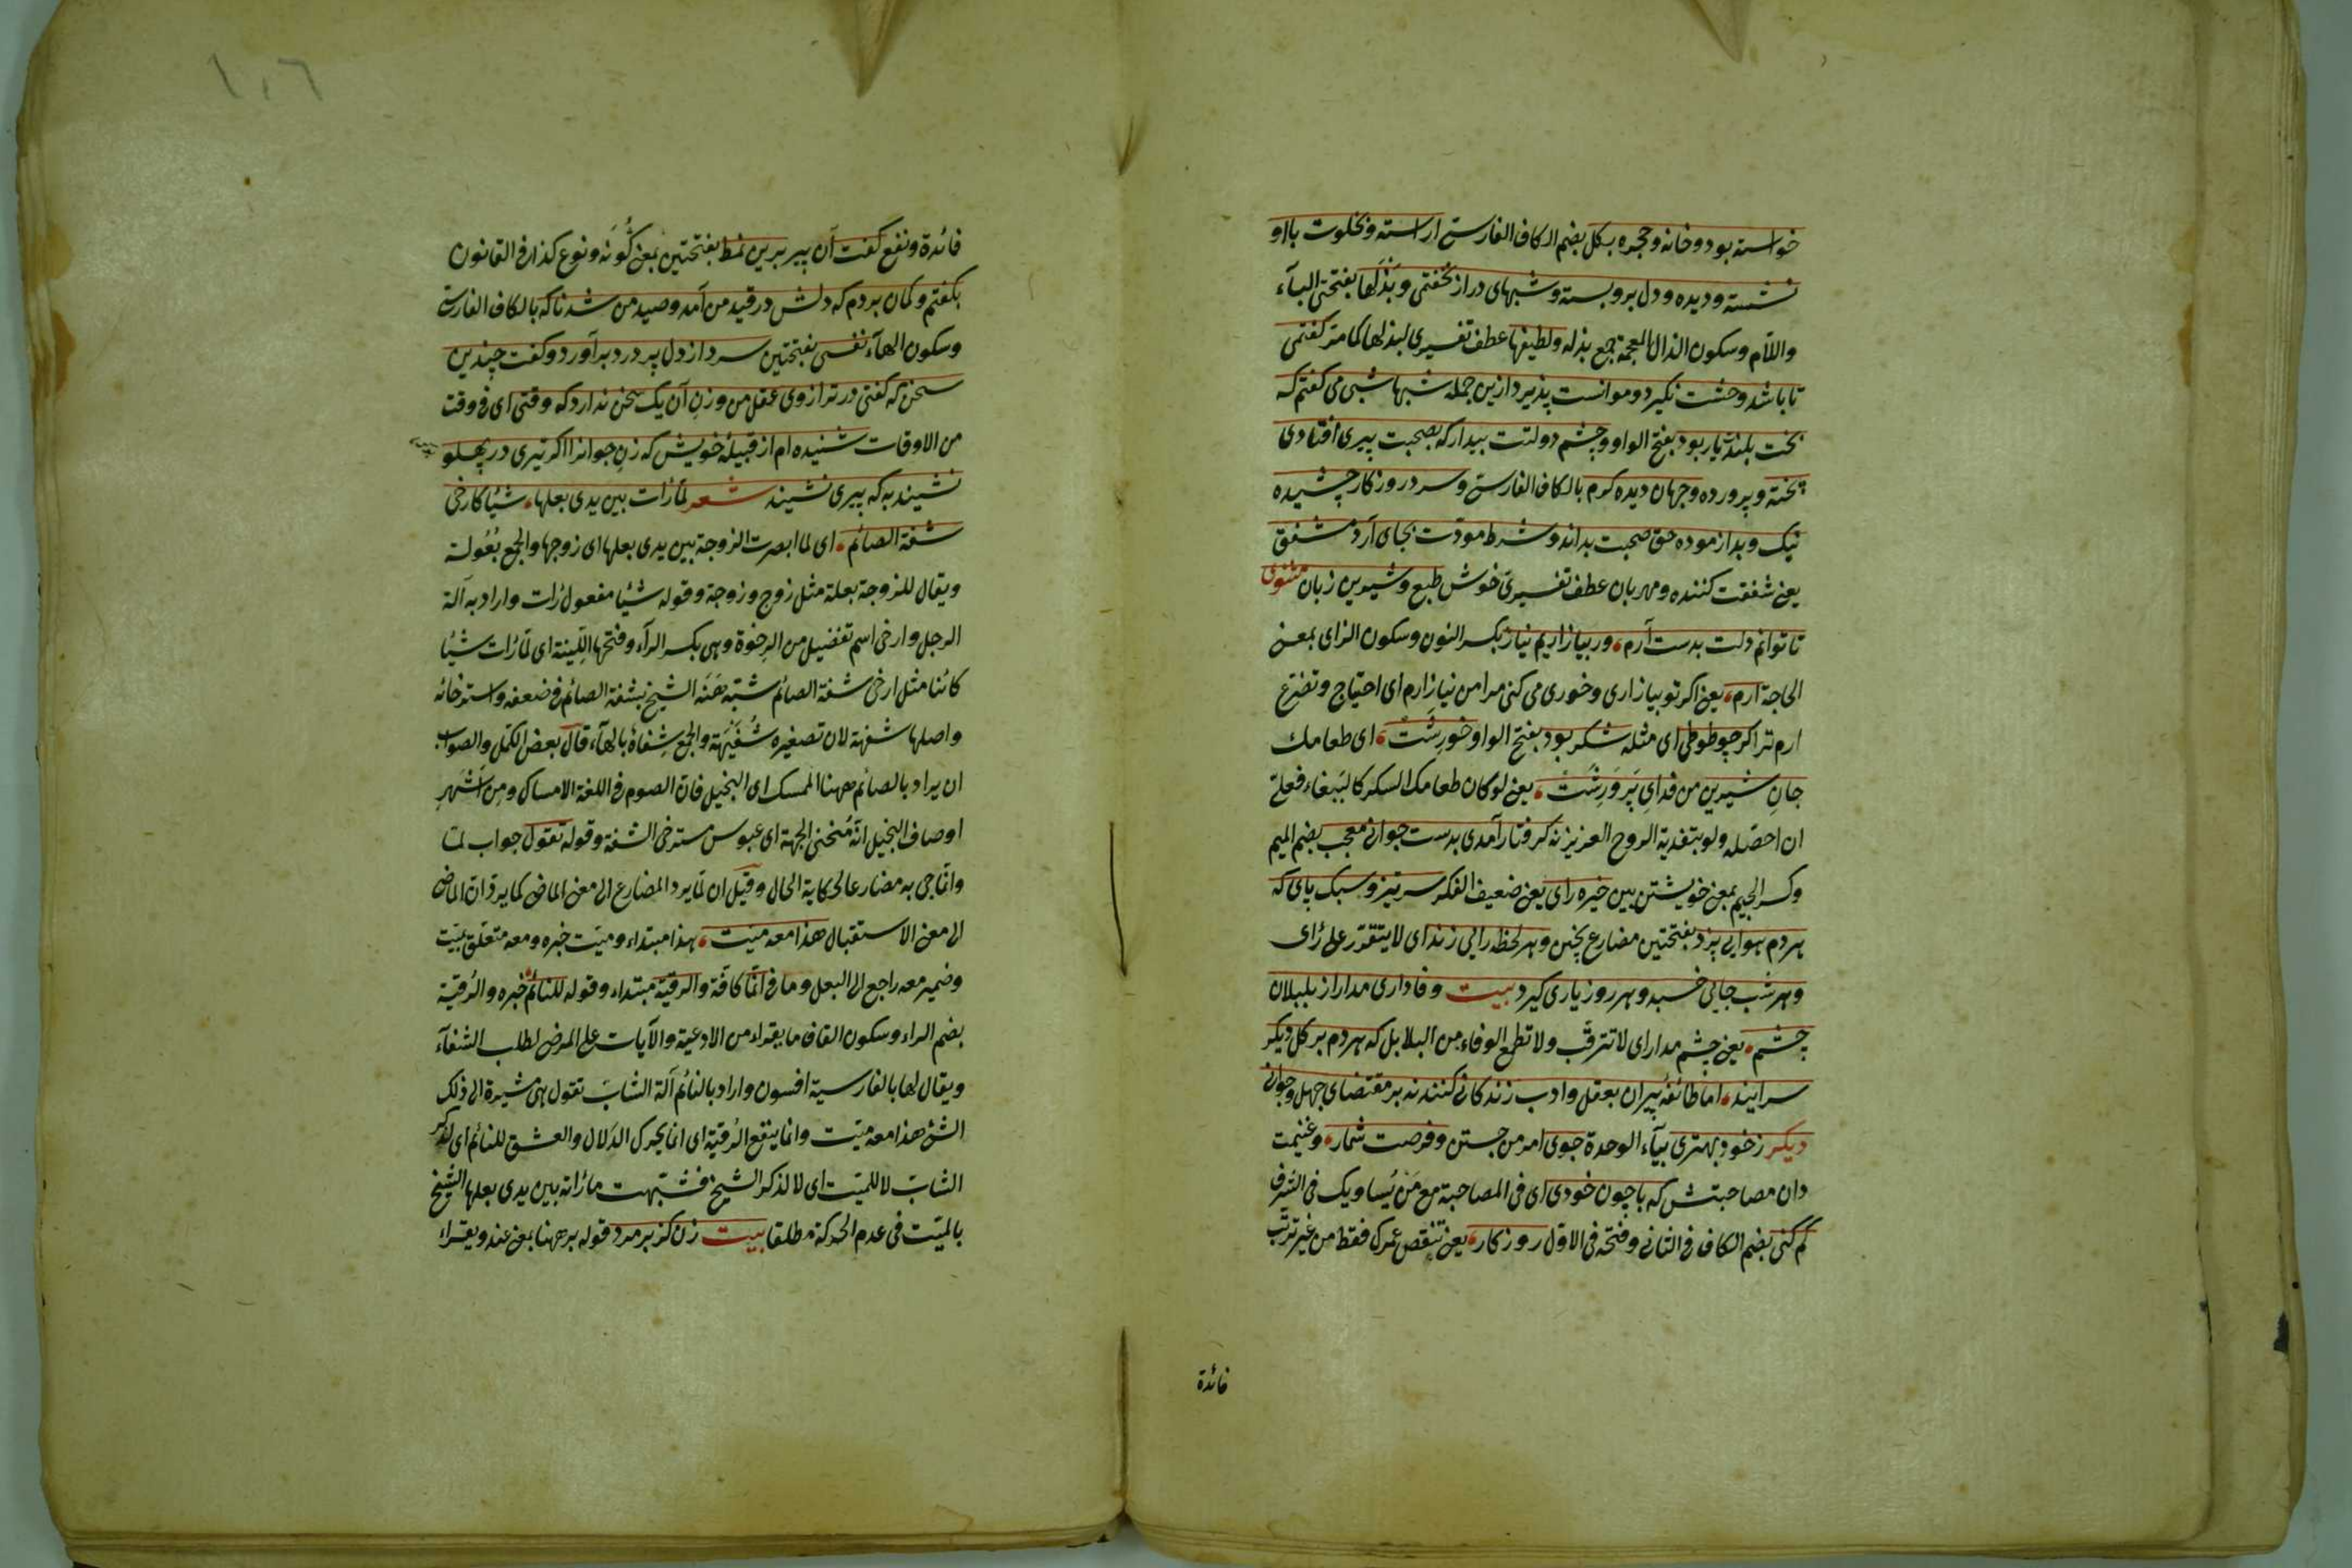 خواسته بود و خانه و حجره بكل بضم الكاف الفارسى اراسته و بخلوت با او
نشسته و ديده و دل برو بسته و شبهاى دراز نخفتى و بذلها بفتحتى البآء
واللآم وسكون الذال المعجمة جمع بذله ولطيفها عطف تفسيرى لبذلها كما مر كفتمى
تا باشد وحشت نكيرد و موانست پذيرد ازين جمله شبها شبى مى كفتم كه
بخت بلندت يار بود بفتح الواو و چشم دولتت بيدار كه بصحبت پيرى افتادى
پخته و پرورده و جهان ديده كرم بالكاف الفارسى و سرد روزكار چشيده
نيك و بد ازموده حق صحبت بداند و شرط مودت بجاى آرد مشفق
يعنى شفقت كننده و مهربان عطف تفسيرى خوش طبع و شيرين زبان مثنوى
تا توانم دلت بدست آرم، ور بيازاريم نياز بكسر النون وسكون الزاى بمعنى
الحاجة ارم، يعنى اكر تو بيازارى و خورى مى كنى مرا من نياز ارم اى احتياج وتضرع
ارم تر اكر چو طوطى اى مثله شكر بود بفتح الواو خورشت، اى طعامك
جان شيرين من فداى پرورشت، يعنى لو كان طعامك السكر كالببغاء فعلى
ان احصله ولو بتفدية الروح العزيز نه كرفتار آمدى بدست جوانى معجب بضم الميم
وكسر الجيم بمعنى خويشتن بين خيره راى يعنى ضعيف الفكر سرتيز و سبك پاى كه
هر دم هوايى پزد بفتحتين مضارع پختن و هر لحظه رايى زند اى لا يتقرر على راى
و هر شب جايى خسبد و هر روز يارى كيرد بيت وفادارى مدار از بلبلان
چشم، يعنى چشم مدار اى لا تترقب ولا تطمع الوفاء من البلابل كه هر دم بر كل ديكر
سرايند، اما طائفه پيران بعقل و ادب زندكانى كنند نه بر مقتضاى جهل وجوانى
ديكر ز خود بهترى بيآء الوحدة جوى امر من جستن و فرصت شمار، وغنيمت
دان مصاحبتش كه با چون خودى اى فى المصاحبة مع من يساويك فى الشرف
كم كنى بضم الكاف فى الثانى وفتحه فى الاول روزكار، يعنى تنقص عمرك فقط من غير ترتب
فائدة
١٠٦
فائدة ونفع كفت آن پير برين نمط بفتحتين بمعنى كونه ونوع كذا فى القانون
بكفتم و كمان بردم كه دلش در قيد من آمد و صيد من شد ناكه بالكاف الفارسى
وسكون الهآء نفسى بفتحتين سرد از دل پر درد برآورد و كفت چندين
سخن كه كفتى در ترازوى عقل من وزن آن يك سخن ندارد كه وقتى اى فى وقت
من الاوقات شنيده ام از قبيلۀ خويش كه زن جوانرا اكر تيرى در پهلو
نشيند به كه پيرى نشيند شعر لما رات بين يدى بعلها، شيئا كارخى
شفة الصائم، اى لما ابصرت الزوجة بين يدى بعلها اى زوجها والجمع بعولة
ويقال للزوجة بعلة مثل زوج وزوجة وقوله شيئا مفعول رات واراد به آلة
الرجل وارخى اسم تفضيل من الرخوة وهى بكسر الرآء وفتحها اللينة اى لما رات شيئا
كائنا مثل ارخى شفة الصائم شبه هنه الشيخ بشفة الصائم فى ضعفه واسترخائه
واصلها شفهة لان تصغيره شفيهة والجمع شفاه بالهآء، قال بعض الكمل والصواب
ان يراد بالصائم ههنا الممسك اى البخيل فان الصوم فى اللغة الامساك ومن اشهر
اوصاف البخيل انه منحنى الجبهة اى عبوس مسترخى الشفة وقوله تقول جواب لما
وانما جئ به مضارعا لحكاية الحال وقيل ان لما يرد المضارع الى معنى الماضى كما يرد ان الماضى
الى معنى الاستقبال هذا معه ميت، هذا مبتداء وميت خبره ومعه متعلق بميت
وضمير معه راجع الى البعل وما فى انما كافة والرقية مبتداء وقوله للنائم خبره والرقية
بضم الراء وسكون القاف ما يقراء من الادعية والآيات على المرضى لطلب الشفآء
ويقال لها بالفارسية افسون واراد بالنائم آلة الشاب تقول هى مشيرة الى ذلك
الشئ هذا معه ميت وانما ينفع الرقية اى انما يحرك الدلال والعشق للنائم اى لذكر
الشاب لا للميت اى لا لذكر الشيخ فشبهت ما راته بين يدى بعلها الشيخ
بالميت فى عدم الحركة مطلقا بيت زن كز بر مرد قوله بر ههنا بمعنى عند ويقراء